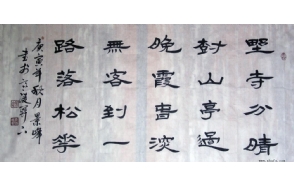 野寺分晴
樹山亭過
晚霞春深
無客到一
路落松花
庚寅年秋月景峰